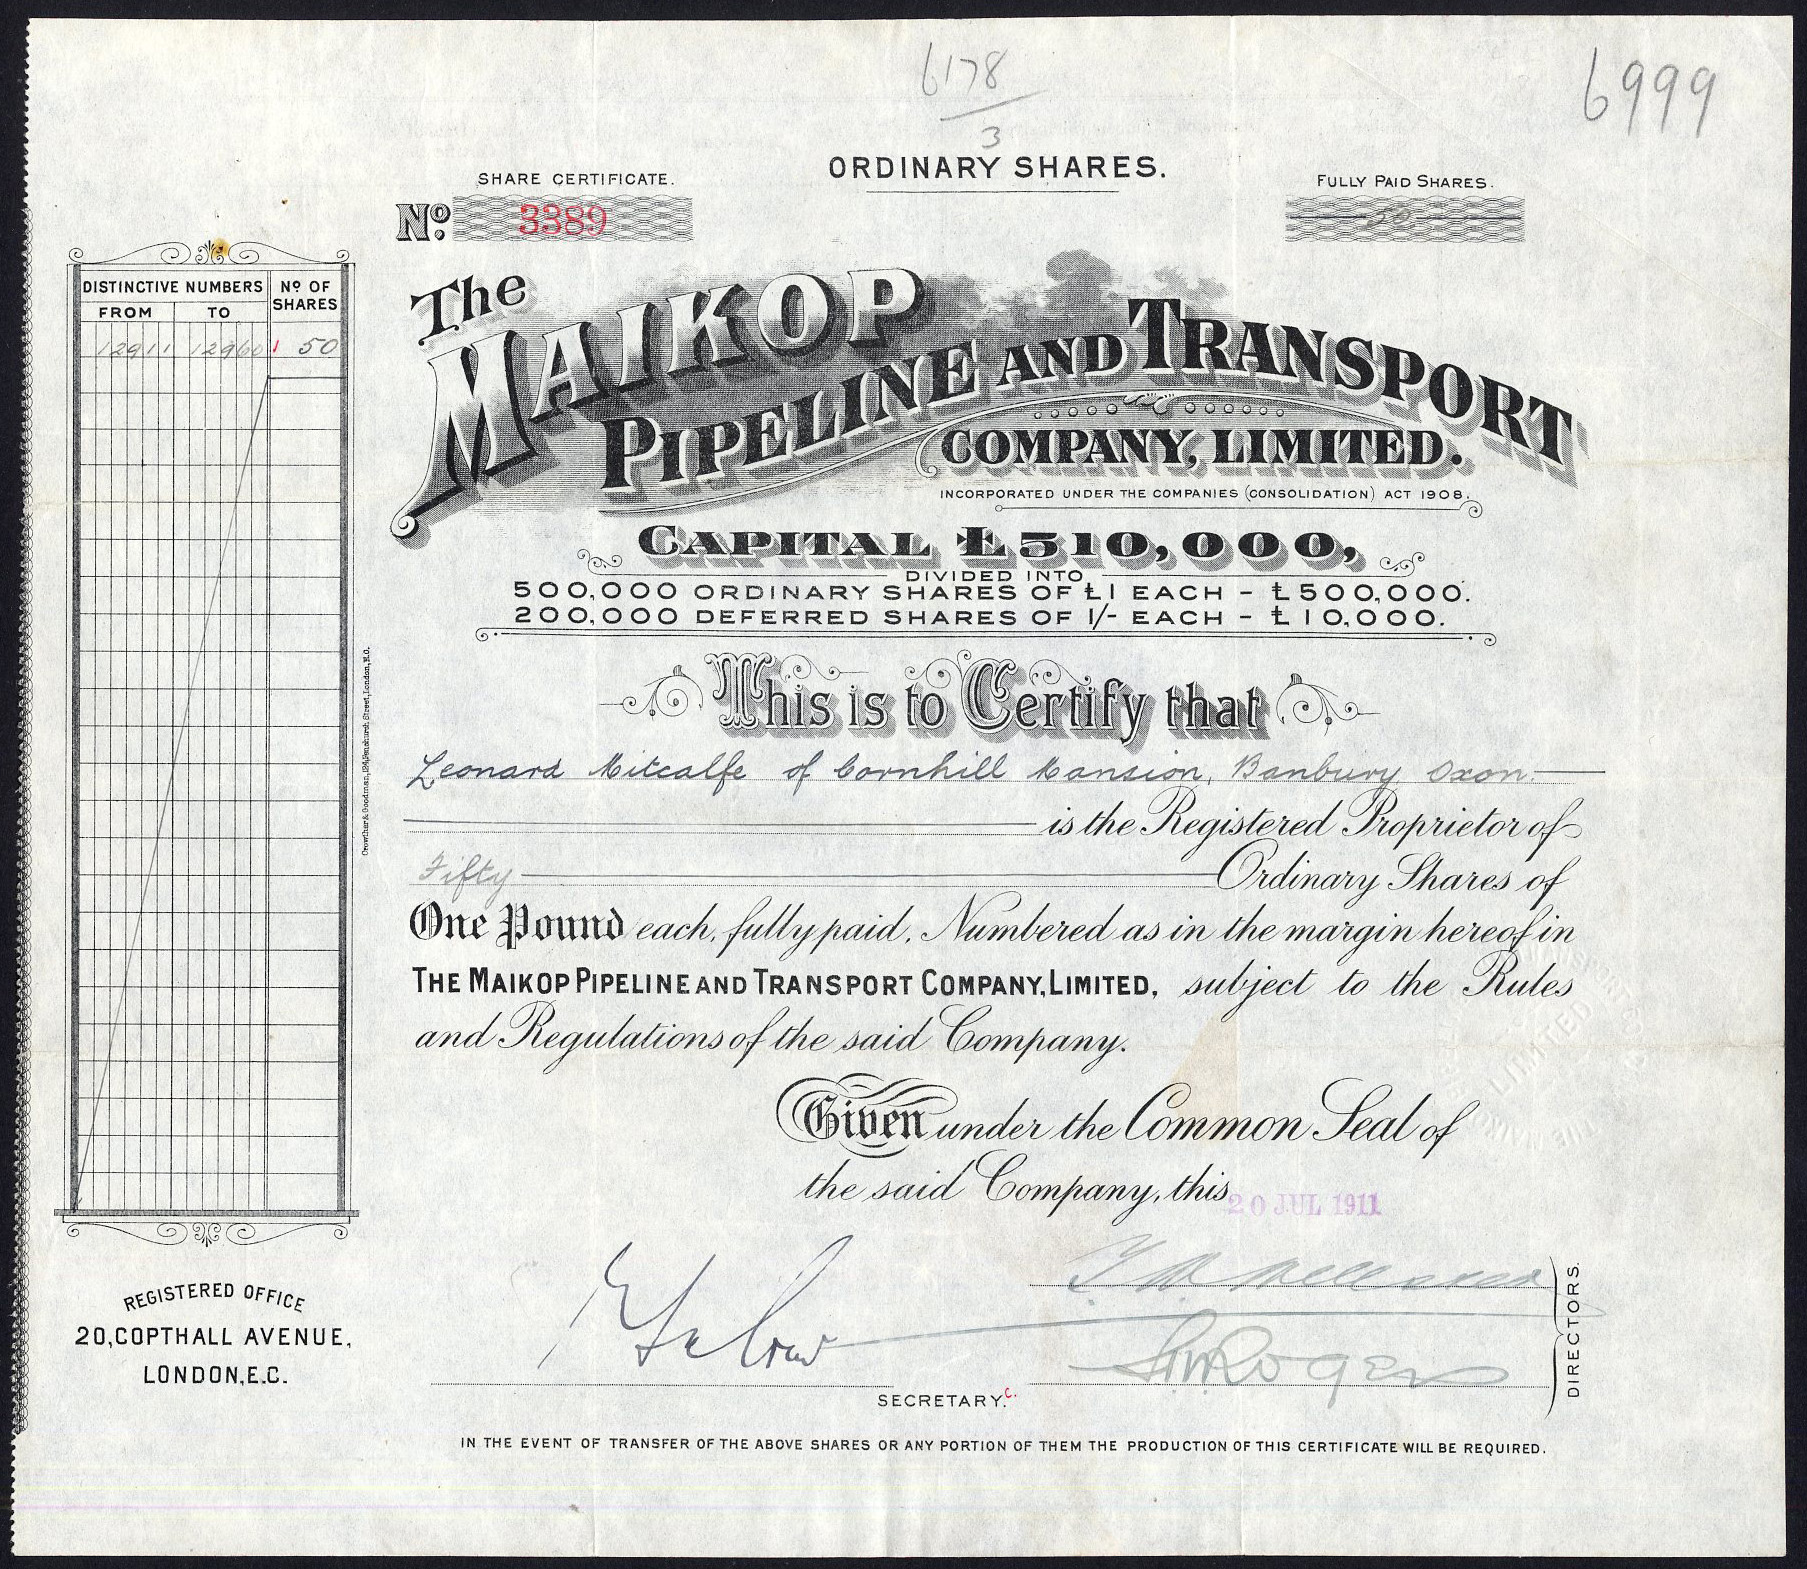 6178
3
6999
ORDINARY SHARES.
SHARE CERTIFICATE.
No. 3389
FULLY PAID SHARES.
50
DISTINCTIVE NUMBERS
No OF SHARES
FROM
TO
12911 12960 1 50
The
MAIKOP
PIPELINE AND TRANSPORT
COMPANY, LIMITED.
INCORPORATED UNDER THE COMPANIES (CONSOLIDATION) ACT 1908.
CAPITAL £510,000,
DIVIDED INTO
500,000 ORDINARY SHARES OF £1 EACH - £500,000.
200,000 DEFERRED SHARES OF 1/- EACH - £10,000.
This is to Certify that
Leonard Mitcalfe of Cornhill Mansion, Banbury Oxon.
is the Registered Proprietor of
Fifty Ordinary Shares of
One Pound each, fully paid, Numbered as in the margin hereof in
THE MAIKOP PIPELINE AND TRANSPORT COMPANY, LIMITED, subject to the Rules
and Regulations of the said Company.
Given under the Common Seal of
the said Company, this 20 JUL 1911
DIRECTORS.
Rogers
SECRETARY. C.
REGISTERED OFFICE
20, COPTHALL AVENUE,
LONDON, E.C.
IN THE EVENT OF TRANSFER OF THE ABOVE SHARES OR ANY PORTION OF THEM THE PRODUCTION OF THIS CERTIFICATE WILL BE REQUIRED.
Crowther & Goodman, 124, Fenchurch Street, London, E.C.
LIMITED